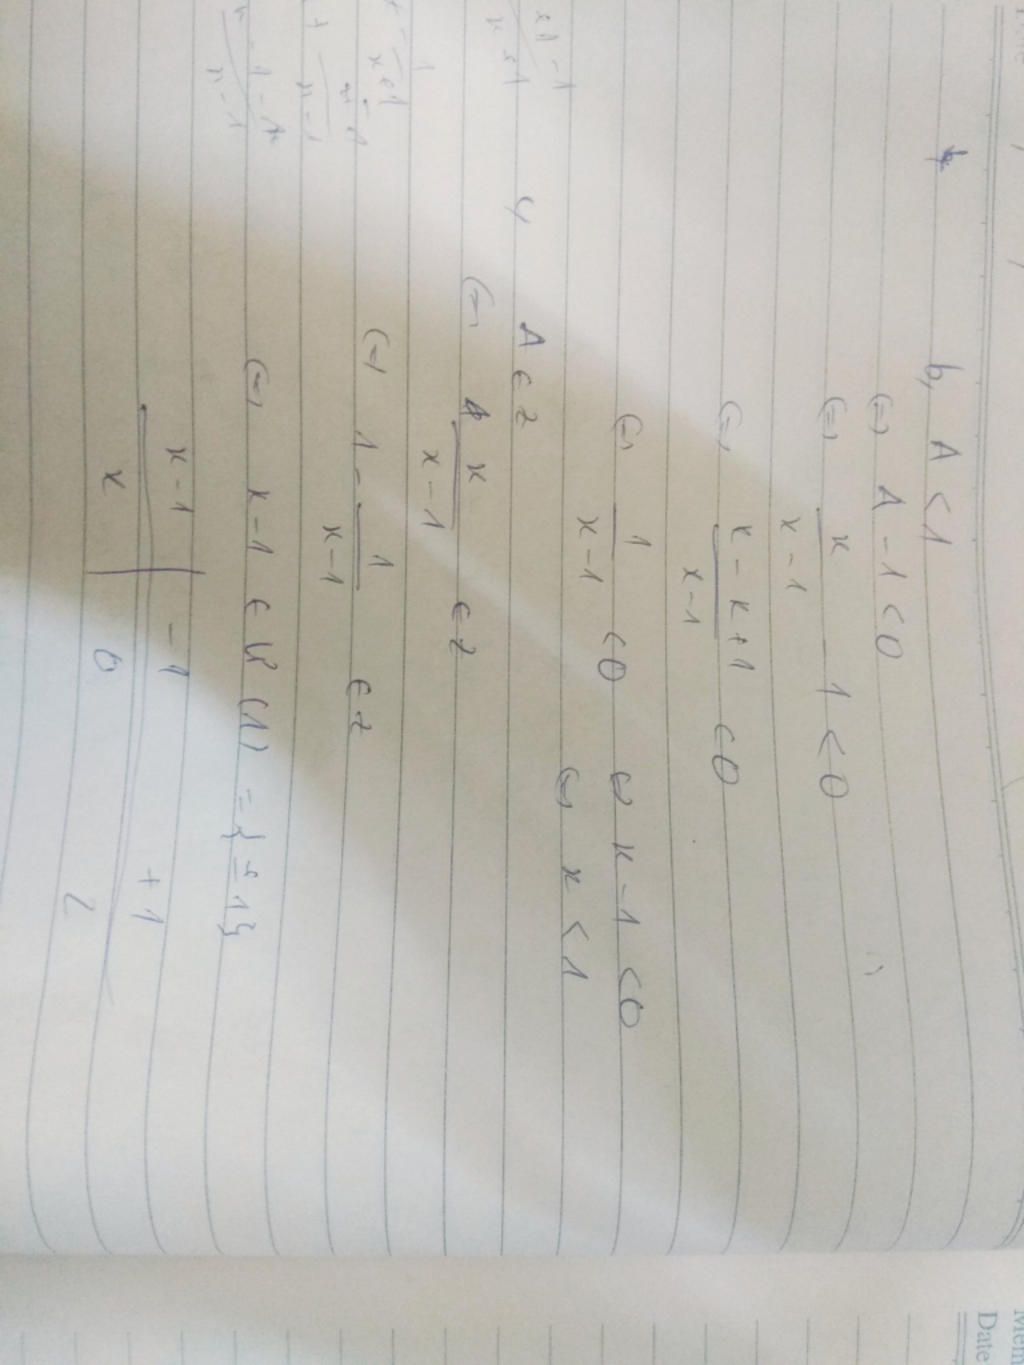 b, A < 1
(=) A - 1 < 0
(=) x / x - 1 - 1 < 0
(=) x - x + 1 / x - 1 < 0
(=) 1 / x - 1 < 0 (=) x - 1 < 0
(=) x < 1
A ∈ Z
(=) x / x - 1 ∈ Z
(=) 1 - 1 / x - 1 ∈ Z
(=) x - 1 ∈ Ư (1) = {± 1}
x - 1 | - 1 + 1
x | 0 2
Date